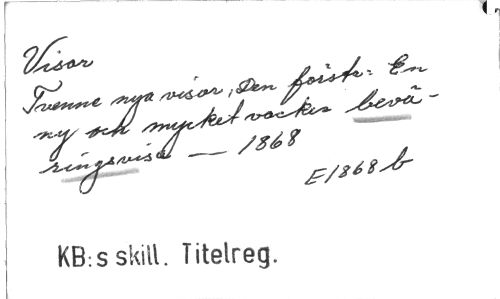 Visor
Tvenne nya visor, Den första: En
ny och mycket vacker bevä-
ringsvisa — 1868
E1868 b
KB:s skill. Titelreg.